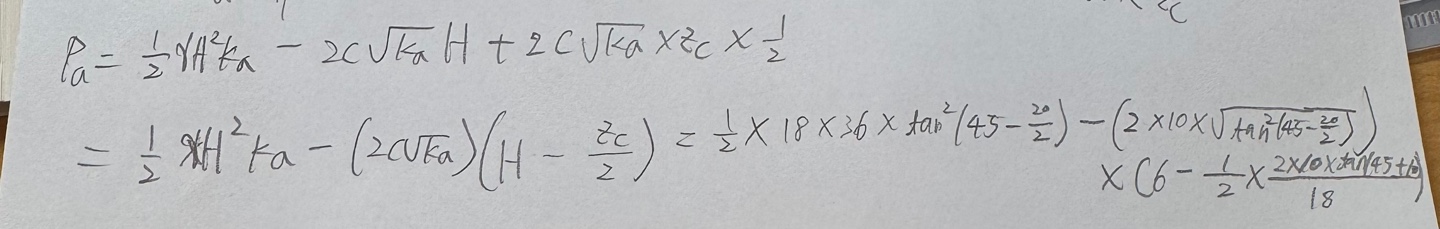 Pa = 1/2 γH²ka − 2c√ka H + 2c√ka × zc × 1/2
= 1/2 γH²ka − (2c√ka)(H − zc/2) = 1/2 × 18 × 36 × tan²(45 − 20/2) − (2×10×√tan²(45−20/2))
× (6 − 1/2 × 2×10×tan(45+10)/18)